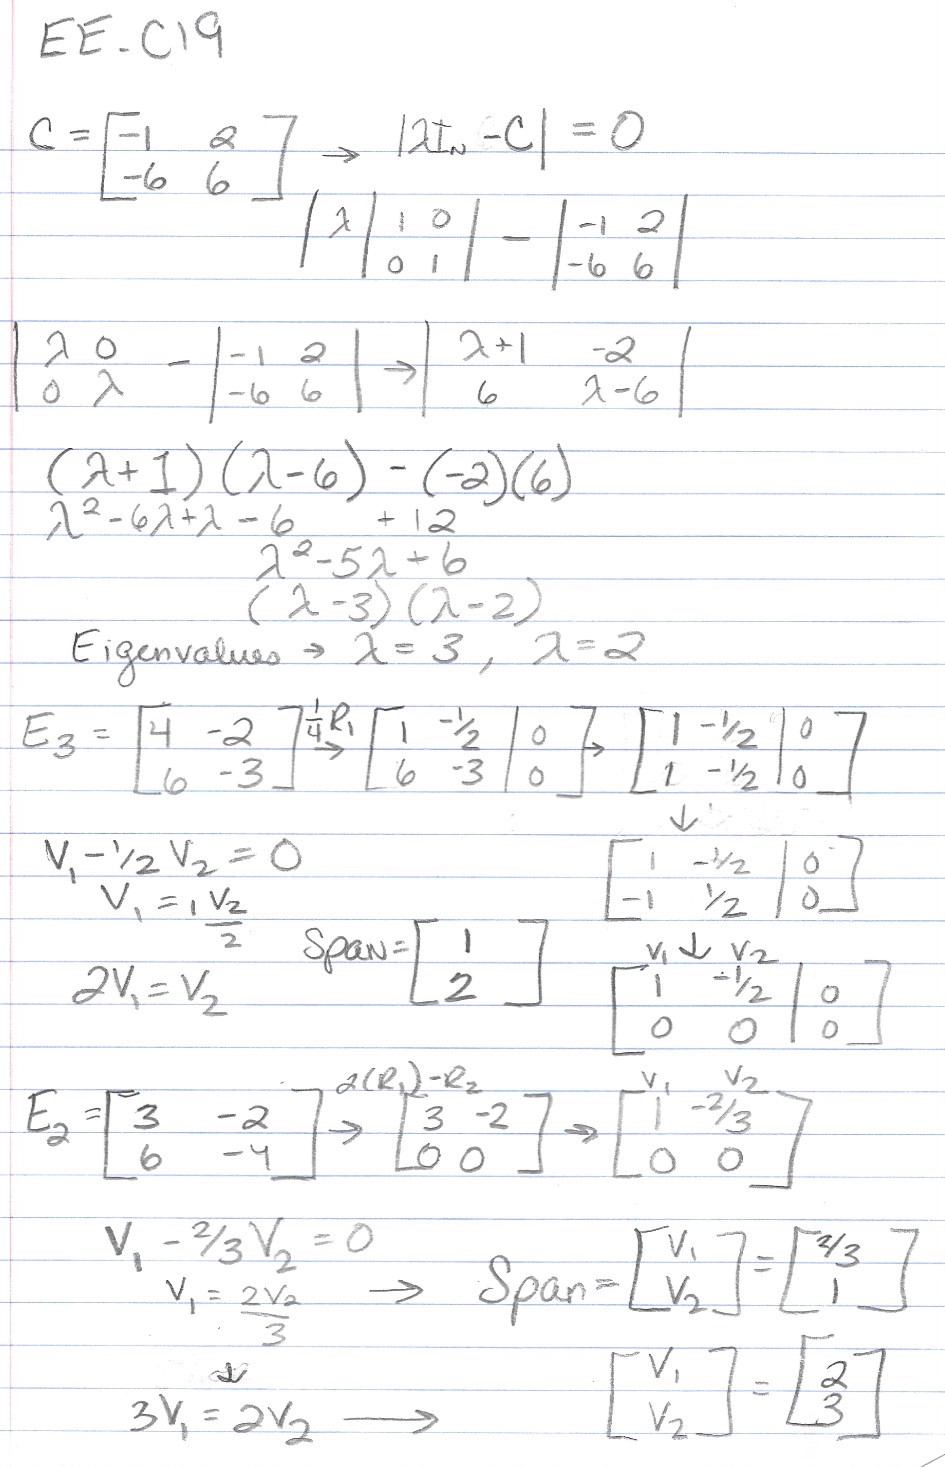 EE-C19
C = [-1 2; -6 6] → |λI_N - C| = 0
|λ|1 0; 0 1| - |-1 2; -6 6|
|λ 0; 0 λ - |-1 2; -6 6| → |λ+1 -2; 6 λ-6|
(λ+1)(λ-6) - (-2)(6)
λ²-6λ+λ-6 +12
λ²-5λ+6
(λ-3)(λ-2)
Eigenvalues → λ=3, λ=2
E₃ = [4 -2; 6 -3] ¼R₁ → [1 -½ | 0; 6 -3 | 0] → [1 -½ | 0; 1 -½ | 0]
↓
V₁ - ½V₂ = 0
[1 -½ | 0; -1 ½ | 0]
V₁ = 1 V₂/2
Span = [1; 2]
V₁ ↓ V₂
2V₁ = V₂
[1 -½ | 0; 0 0 | 0]
E₂ = [3 -2; 6 -4] 2(R₁)-R₂ → [3 -2; 0 0] → V₁ V₂ [1 -2/3; 0 0]
V₁ - 2/3 V₂ = 0
V₁ = 2V₂/3 → Span = [V₁; V₂] = [2/3; 1]
↓
3V₁ = 2V₂ → [V₁; V₂] = [2; 3]